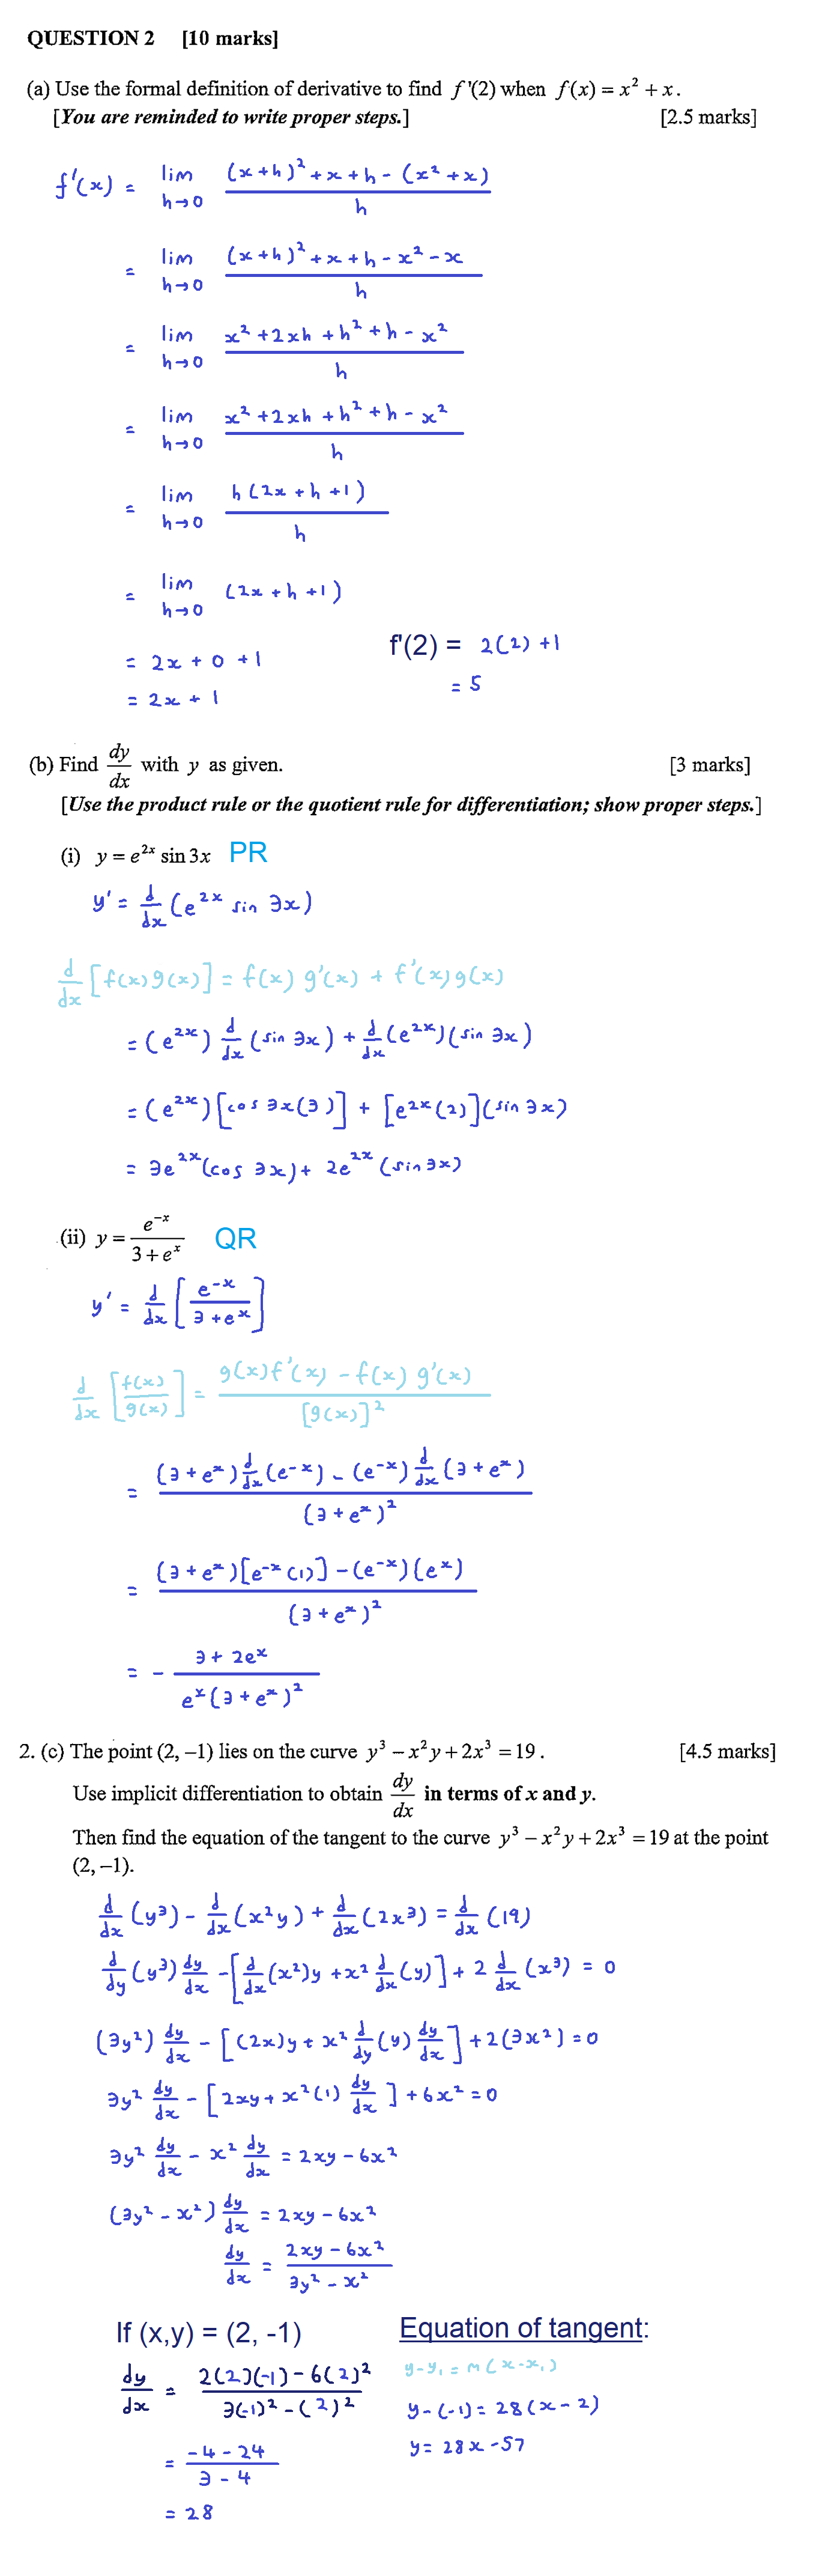 QUESTION 2 [10 marks]
(a) Use the formal definition of derivative to find f'(2) when f(x) = x² + x.
[You are reminded to write proper steps.] [2.5 marks]
f'(x) = lim h→0 ((x+h)² + x + h - (x² + x)) / h
= lim h→0 ((x+h)² + x + h - x² - x) / h
= lim h→0 (x² + 2xh + h² + h - x²) / h
= lim h→0 (x² + 2xh + h² + h - x²) / h
= lim h→0 h(2x + h + 1) / h
= lim h→0 (2x + h + 1)
= 2x + 0 + 1
= 2x + 1
f'(2) = 2(2) + 1
= 5
(b) Find dy/dx with y as given. [3 marks]
[Use the product rule or the quotient rule for differentiation; show proper steps.]
(i) y = e^{2x} sin 3x PR
y' = d/dx (e^{2x} sin 3x)
d/dx [f(x)g(x)] = f(x) g'(x) + f'(x)g(x)
= (e^{2x}) d/dx (sin 3x) + d/dx (e^{2x})(sin 3x)
= (e^{2x})[cos 3x(3)] + [e^{2x}(2)](sin 3x)
= 3e^{2x}(cos 3x) + 2e^{2x}(sin 3x)
(ii) y = e^{-x} / (3 + e^x) QR
y' = d/dx [e^{-x} / (3 + e^x)]
d/dx [f(x)/g(x)] = (g(x)f'(x) - f(x) g'(x)) / [g(x)]²
= ((3 + e^x) d/dx (e^{-x}) - (e^{-x}) d/dx (3 + e^x)) / (3 + e^x)²
= ((3 + e^x)[e^{-x}(1)] - (e^{-x})(e^x)) / (3 + e^x)²
= - (3 + 2e^x) / (e^x(3 + e^x)²)
2. (c) The point (2, –1) lies on the curve y³ – x²y + 2x³ = 19. [4.5 marks]
Use implicit differentiation to obtain dy/dx in terms of x and y.
Then find the equation of the tangent to the curve y³ – x²y + 2x³ = 19 at the point
(2, –1).
d/dx (y³) - d/dx (x²y) + d/dx (2x³) = d/dx (19)
d/dy (y³) dy/dx - [d/dx (x²)y + x² d/dx (y)] + 2 d/dx (x³) = 0
(3y²) dy/dx - [(2x)y + x² d/dy (y) dy/dx] + 2(3x²) = 0
3y² dy/dx - [2xy + x²(1) dy/dx] + 6x² = 0
3y² dy/dx - x² dy/dx = 2xy - 6x²
(3y² - x²) dy/dx = 2xy - 6x²
dy/dx = (2xy - 6x²) / (3y² - x²)
If (x,y) = (2, -1)
dy/dx = (2(2)(-1) - 6(2)²) / (3(-1)² - (2)²)
= (-4 - 24) / (3 - 4)
= 28
Equation of tangent:
y - y₁ = m(x - x₁)
y - (-1) = 28(x - 2)
y = 28x - 57